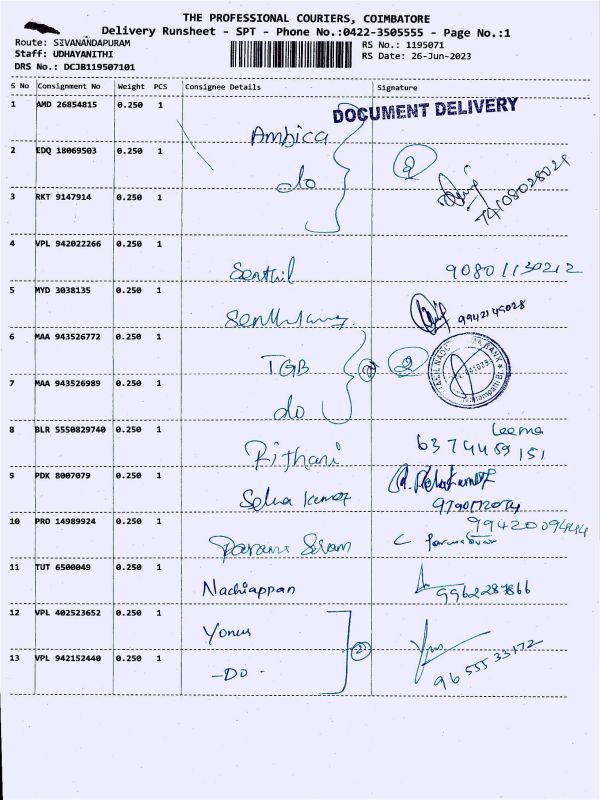 THE PROFESSIONAL COURIERS, COIMBATORE
Delivery Runsheet - SPT - Phone No.:0422-3505555 - Page No.:1
Route: SIVANANDAPURAM RS No.: 1195071
Staff: UDHAYANITHI RS Date: 26-Jun-2023
DRS No.: DCJB119507101
S No Consignment No Weight PCS Consignee Details Signature
1 AMD 26854815 0.250 1 Ambica DOCUMENT DELIVERY
2 EDQ 18069503 0.250 1 do 2
3 RKT 9147914 0.250 1
4 VPL 942022266 0.250 1 Senthil
5 MYD 3038135 0.250 1 9942149028
6 MAA 943526772 0.250 1 TGB 2 2
7 MAA 943526989 0.250 1 do
8 BLR 5550829740 0.250 1 Rithani Leema
9 PDK 8007079 0.250 1 Selva Kumar
10 PRO 14989924 0.250 1
11 TUT 6500049 0.250 1 Nachiappan 9962287866
12 VPL 402523652 0.250 1 Yonus 2
13 VPL 942152440 0.250 1 -Do- 9655533172